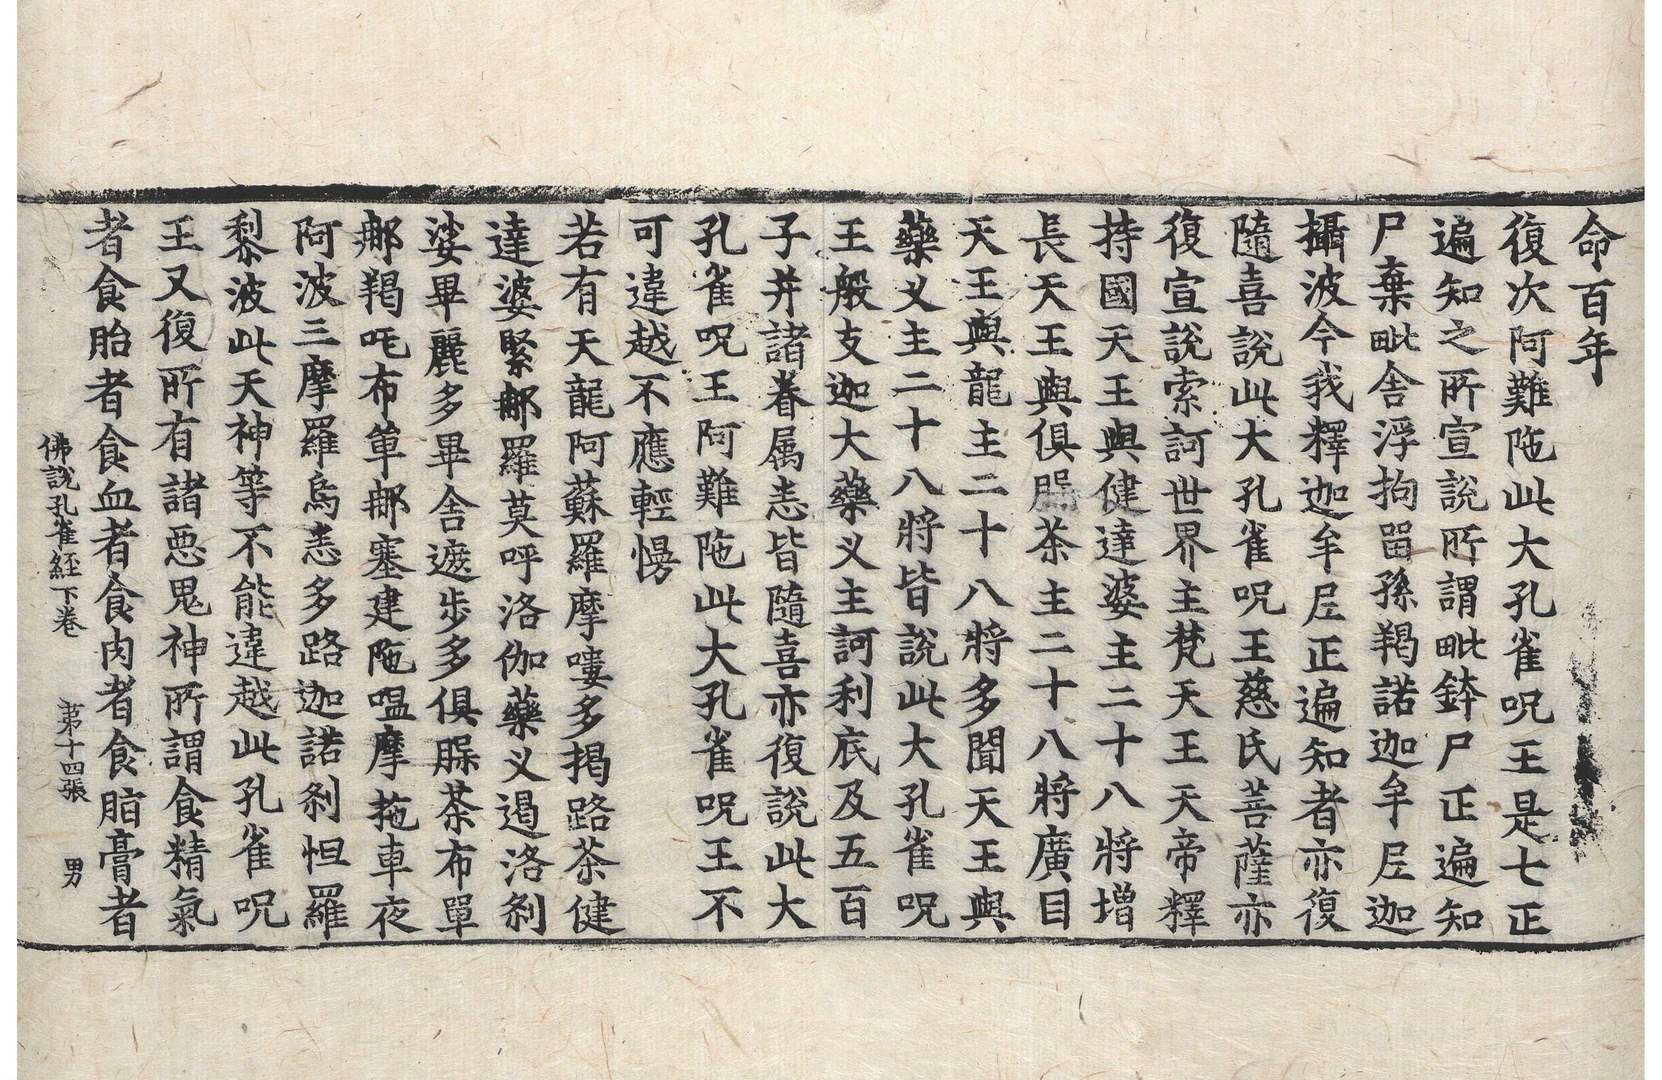 命百年
復次阿難陁此大孔雀呪王是七正
遍知之所宣說所謂毗鉢尸正遍知
尸棄毗舍浮拘留孫羯諾迦牟尼迦
攝波今我釋迦牟尼正遍知者亦復
隨喜說此大孔雀呪王慈氏菩薩亦
復宣說索訶世界主梵天王天帝釋
持國天王與健達婆主二十八將增
長天王與俱槃茶主二十八將廣目
天王與龍主二十八將多聞天王與
藥叉主二十八將皆說此大孔雀呪
王般支迦大藥叉主訶利底及五百
子并諸眷属悉皆隨喜亦復說此大
孔雀呪王阿難陁此大孔雀呪王不
可違越不應輕慢
若有天龍阿蘇羅摩嘍多揭路茶健
達婆緊那羅莫呼洛伽藥叉遏洛剎
娑畢麗多畢舍遮步多俱槃茶布單
那羯吒布單那塞建陁嗢摩拖車夜
阿波三摩羅烏悉多路迦諾剎怛羅
黎波此天神等不能違越此孔雀呪
王又復所有諸惡鬼神所謂食精氣
者食胎者食血者食肉者食脂膏者
佛說孔雀經下卷 第十四張 男